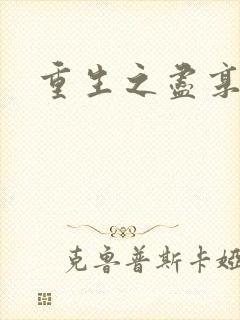 重生之盡
克鲁普斯卡娅